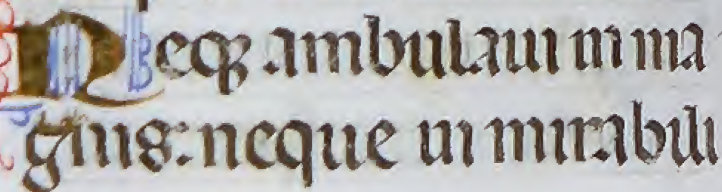 Neqꝫ ambulaui in ma
gnis: neque in mirabili